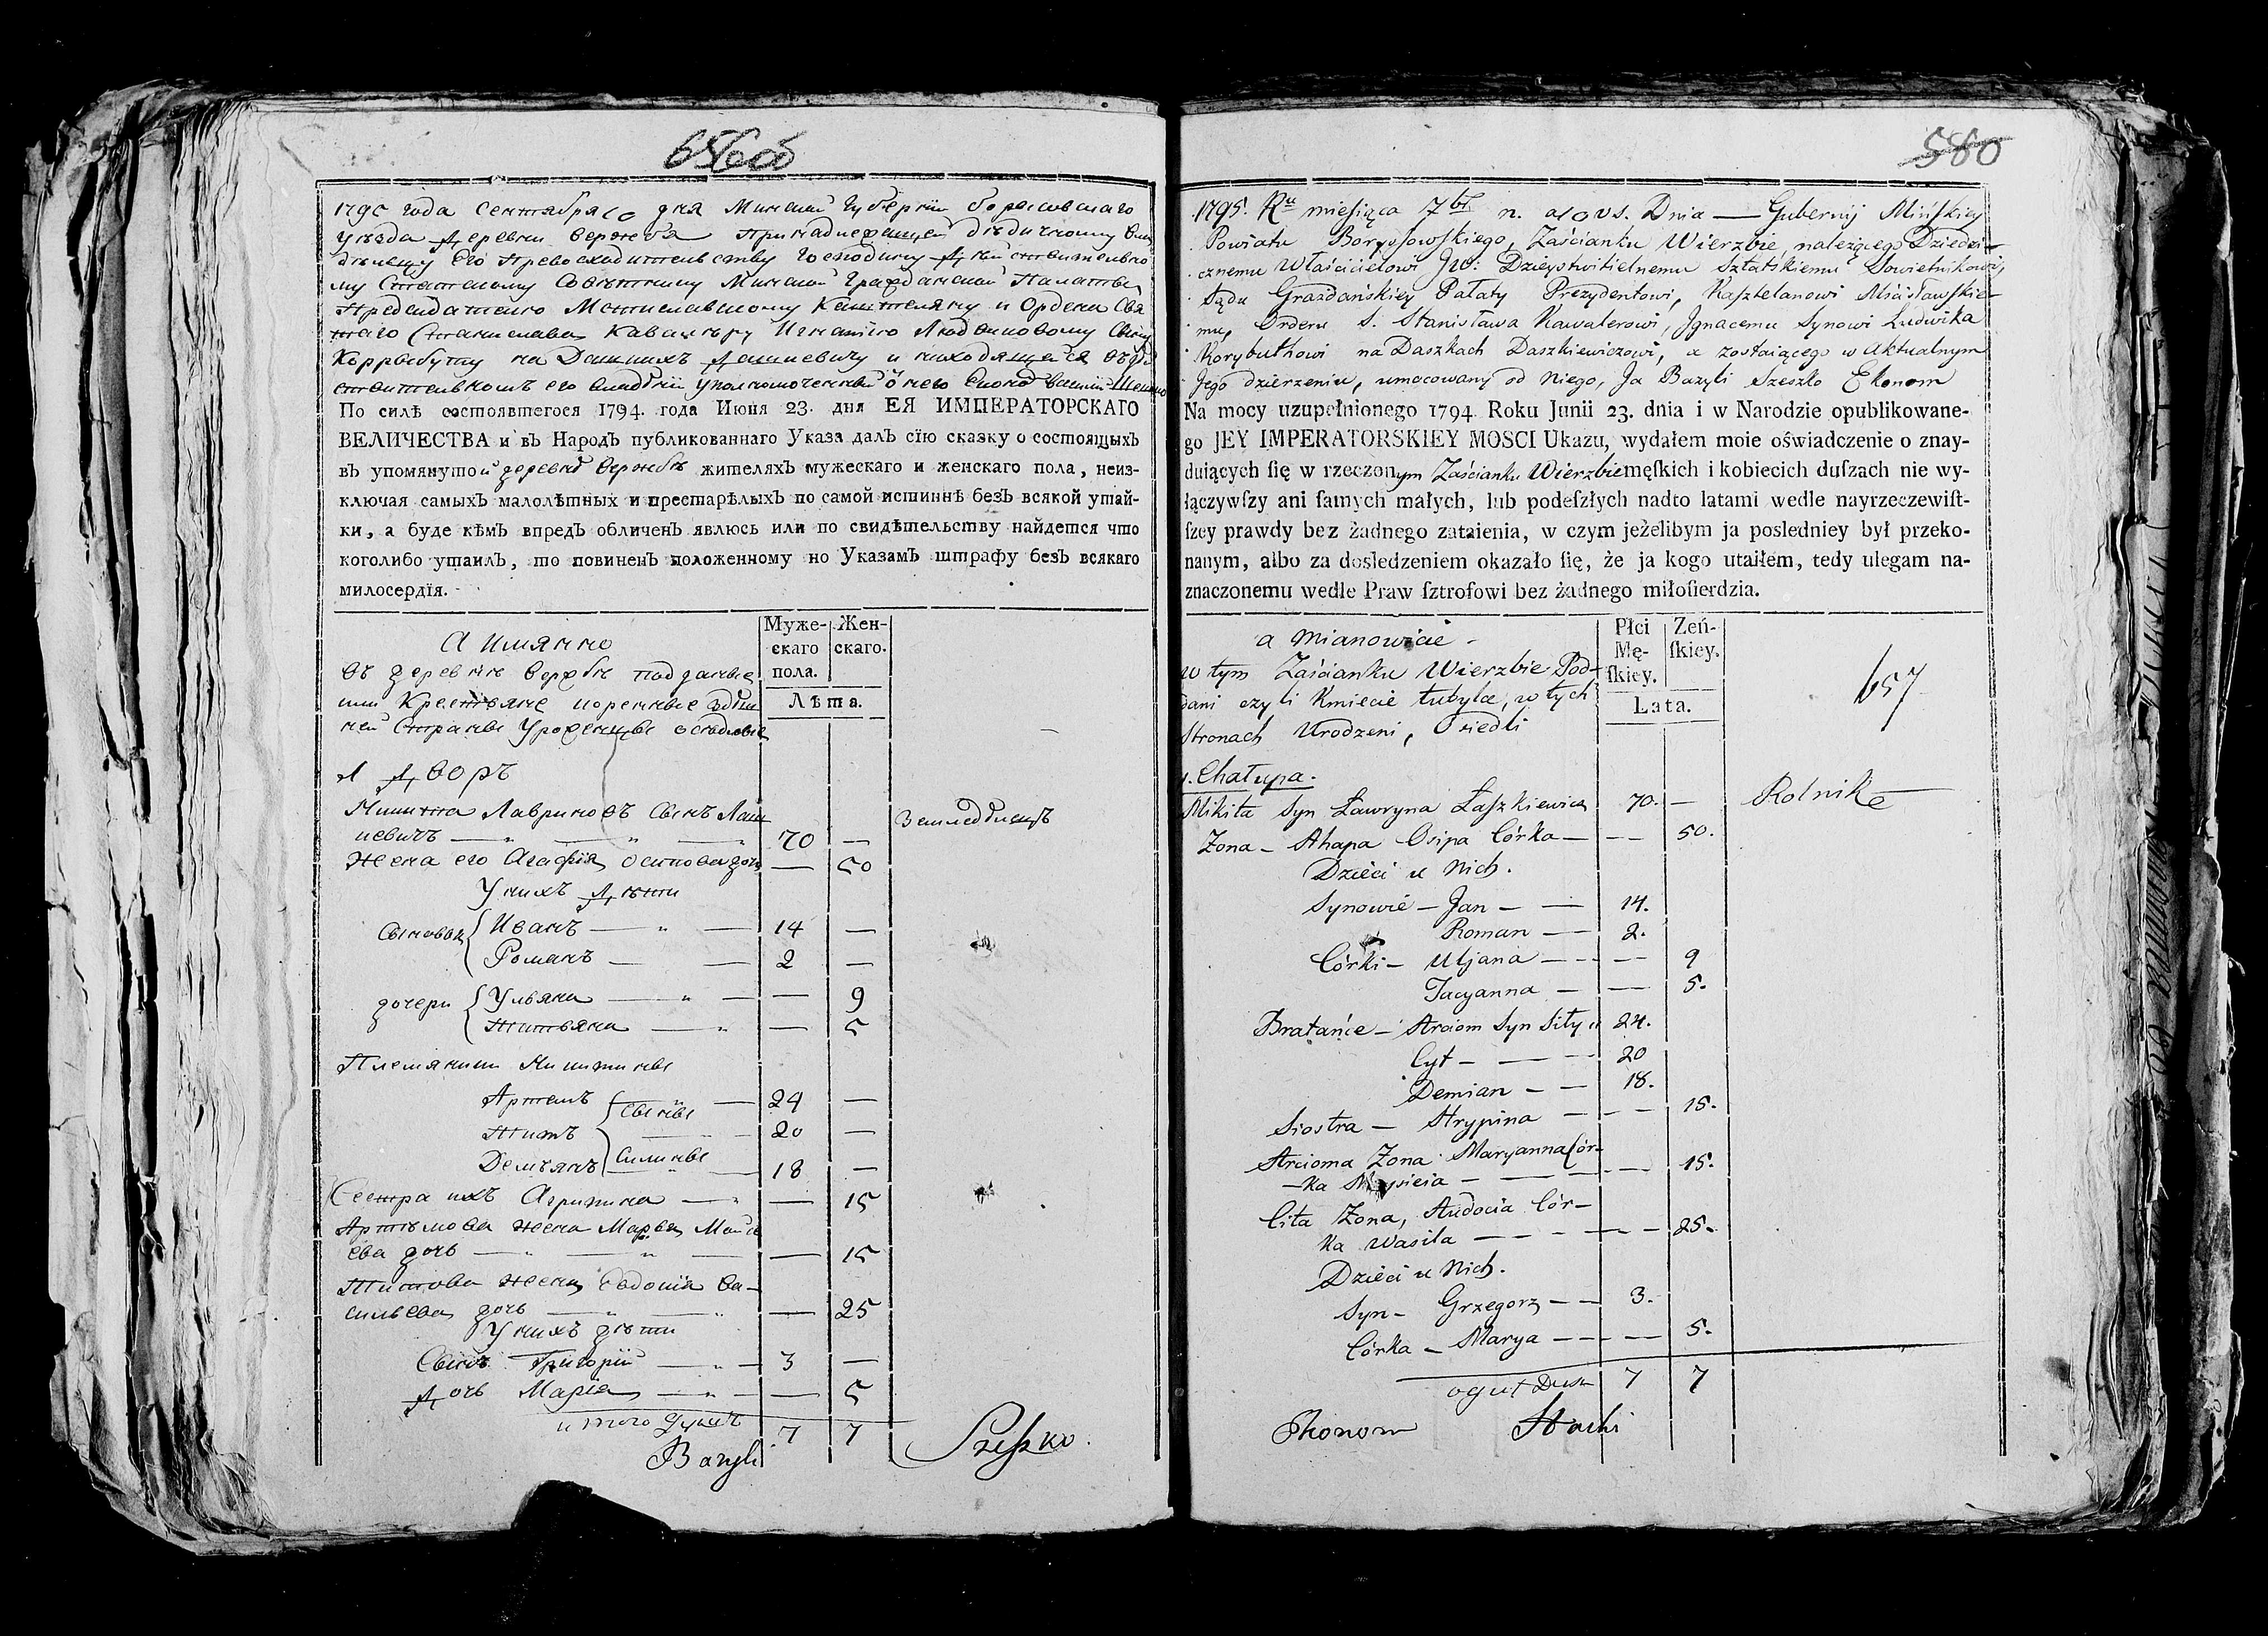 656об
1795 года Сентября 10 дня Минской Губернии Борисовскаго
уезда Деревни Вержба принадлежащей дедичному вла
дельцу Его Превосходительству Господину Действительно
му Статскому Советнику Минской Гражданской Палаты
Председателю Мстиславскому Каштеляну и Ордена Свя
таго Станислава Кавалеру Игнатію Людвиковому Сыну
Корыбуту на Дашках Дашкевичу и находящейся въ дей
ствительномъ его владѣніи уполномоченный от него Эконом Василий Шешко
По силѣ состоявшегося 1794. года Іюня 23. дня ЕЯ ИМПЕРАТОРСКАГО
ВЕЛИЧЕСТВА и въ Народъ публикованнаго Указа далъ сїю сказку о состоящыхъ
въ упомянутой деревнѣ Вержбѣ жителяхъ мужескаго и женскаго пола, неиз-
ключая самыхъ малолѣтныхъ и престарѣлыхъ по самой истиннѣ безъ всякой утай-
ки, а буде кѣмъ впредъ обличенъ явлюсь или по свидѣтельству найдется что
коголибо утаилъ, то повиненъ положенному по Указамъ штрафу безъ всякаго
милосердїя.
А имянно
Въ деревнѣ Вержбѣ подданые
или Крестьяне коренные здѣш
ней Страны Уроженцы оседлые
Муже-
скаго
пола.
Жен-
скаго.
Лѣта.
1 Дворъ
Микита Лавриновъ Сынъ Лаш
кевичъ — 70 —
Земледѣлецъ
Жена его Агафія Осипова дочь — 50
У нихъ Дѣти
Сыновья Иванъ — 14 —
Романъ — 2 —
дочери Ульяна — 9
Татьяна — 5
Племяники Микитины
Артемъ Сыны 24 —
Титъ 20 —
Демьянъ Силины 18 —
Сестра ихъ Агрипина — 15
Артѣмова жена Марья Моисе
ева дочь — 15
Титова жена Евдокія Ва-
сильева дочь — 25
У нихъ дѣти
Сынъ Григорій — 3 —
Дочь Марія — 5
итого душъ 7 7
Bazyli Szeszko.
580
1795. Ru miesiąca 7br n. a 10 v s. Dnia — Gubernij Mińskiey
Powiatu Borysowskiego, Zaścianku Wierzbie, należącego Dziedzi-
cznemu Właścicielowi JW: Dzieystwitielnemu Sztatskiemu Sowietnikowi,
Sądu Grażdańskiey Pałaty Prezydentowi, Kasztelanowi Mścisławskie-
mu, Orderu S. Stanisława Kawalerowi, Jgnacemu Synowi Ludwika
Korybuthowi na Daszkach Daszkiewiczowi, a zostaiącego w Aktualnym
Jego dzierzeniu, umocowany od Niego, Ja Bazyli Szeszko Ekonom
Na mocy uzupełnionego 1794 Roku Junii 23. dnia i w Narodzie opublikowane-
go JEY IMPERATORSKIEY MOSCI Ukazu, wydałem moie oświadczenie o znay-
duiących ſię w rzeczonym Zaścianku Wierzbie męſkich i kobiecich duſzach nie wy-
łączywſzy ani ſamych małych, lub podeſzłych nadto latami wedle nayrzeczewiſt-
ſzey prawdy bez żadnego zataienia, w czym jeżelibym ja posledniey był przeko-
nanym, albo za dosledzeniem okazało ſię, że ja kogo utaiłem, tedy ulegam na-
znaczonemu wedle Praw ſztrofowi bez żadnego miłoſierdzia.
a Mianowicie -
w tym Zaścianku Wierzbie Pod-
dani czyli Kmiecie tubylce, w tych
Stronach Urodzeni, Osiedli
Płci
Mę-
ſkiey.
Zeń-
ſkiey.
Lata.
657
1. Chałupa.
Mikita Syn Ławryna Łaszkiewicz 70. —
Rolnik
Zona - Ahapa Osipa Córka — 50.
Dzieci u Nich.
Synowie - Jan — 14.
Roman — 2.
Córki - Uljana — 9
Tacyanna — 5.
Bratańce - Arciom Syn Siły 24.
Cyt — 20
Demian — 18.
Siostra - Hrypina — 15.
Arcioma Zona Maryanna Cór-
-ka Moysieia — 15.
Cita Zona, Audocia Cór-
ka Wasila — 25.
Dzieci u Nich.
Syn - Grzegorz — 3.
Córka - Marya — 5.
oguł Dusz 7 7
Ekonom